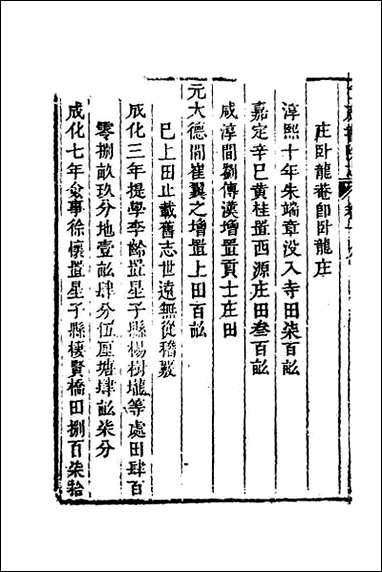 庄卧龍菴即卧龍庄
淳熙十年朱端章没入寺田柒百畝
嘉定辛巳黄桂置西源庄田叁百畝
咸淳間劉傳漢增置貢士庄田
元大德間崔翼之增置上田百畝
已上田止載舊志世遠無從稽覈
成化三年提學李齡置星子縣楊樹壠等處田肆百
零捌畝玖分地壹畝肆分伍厘塘肆畝柒分
成化七年僉事徐懷置星子縣棲賢橋田捌百柒拾